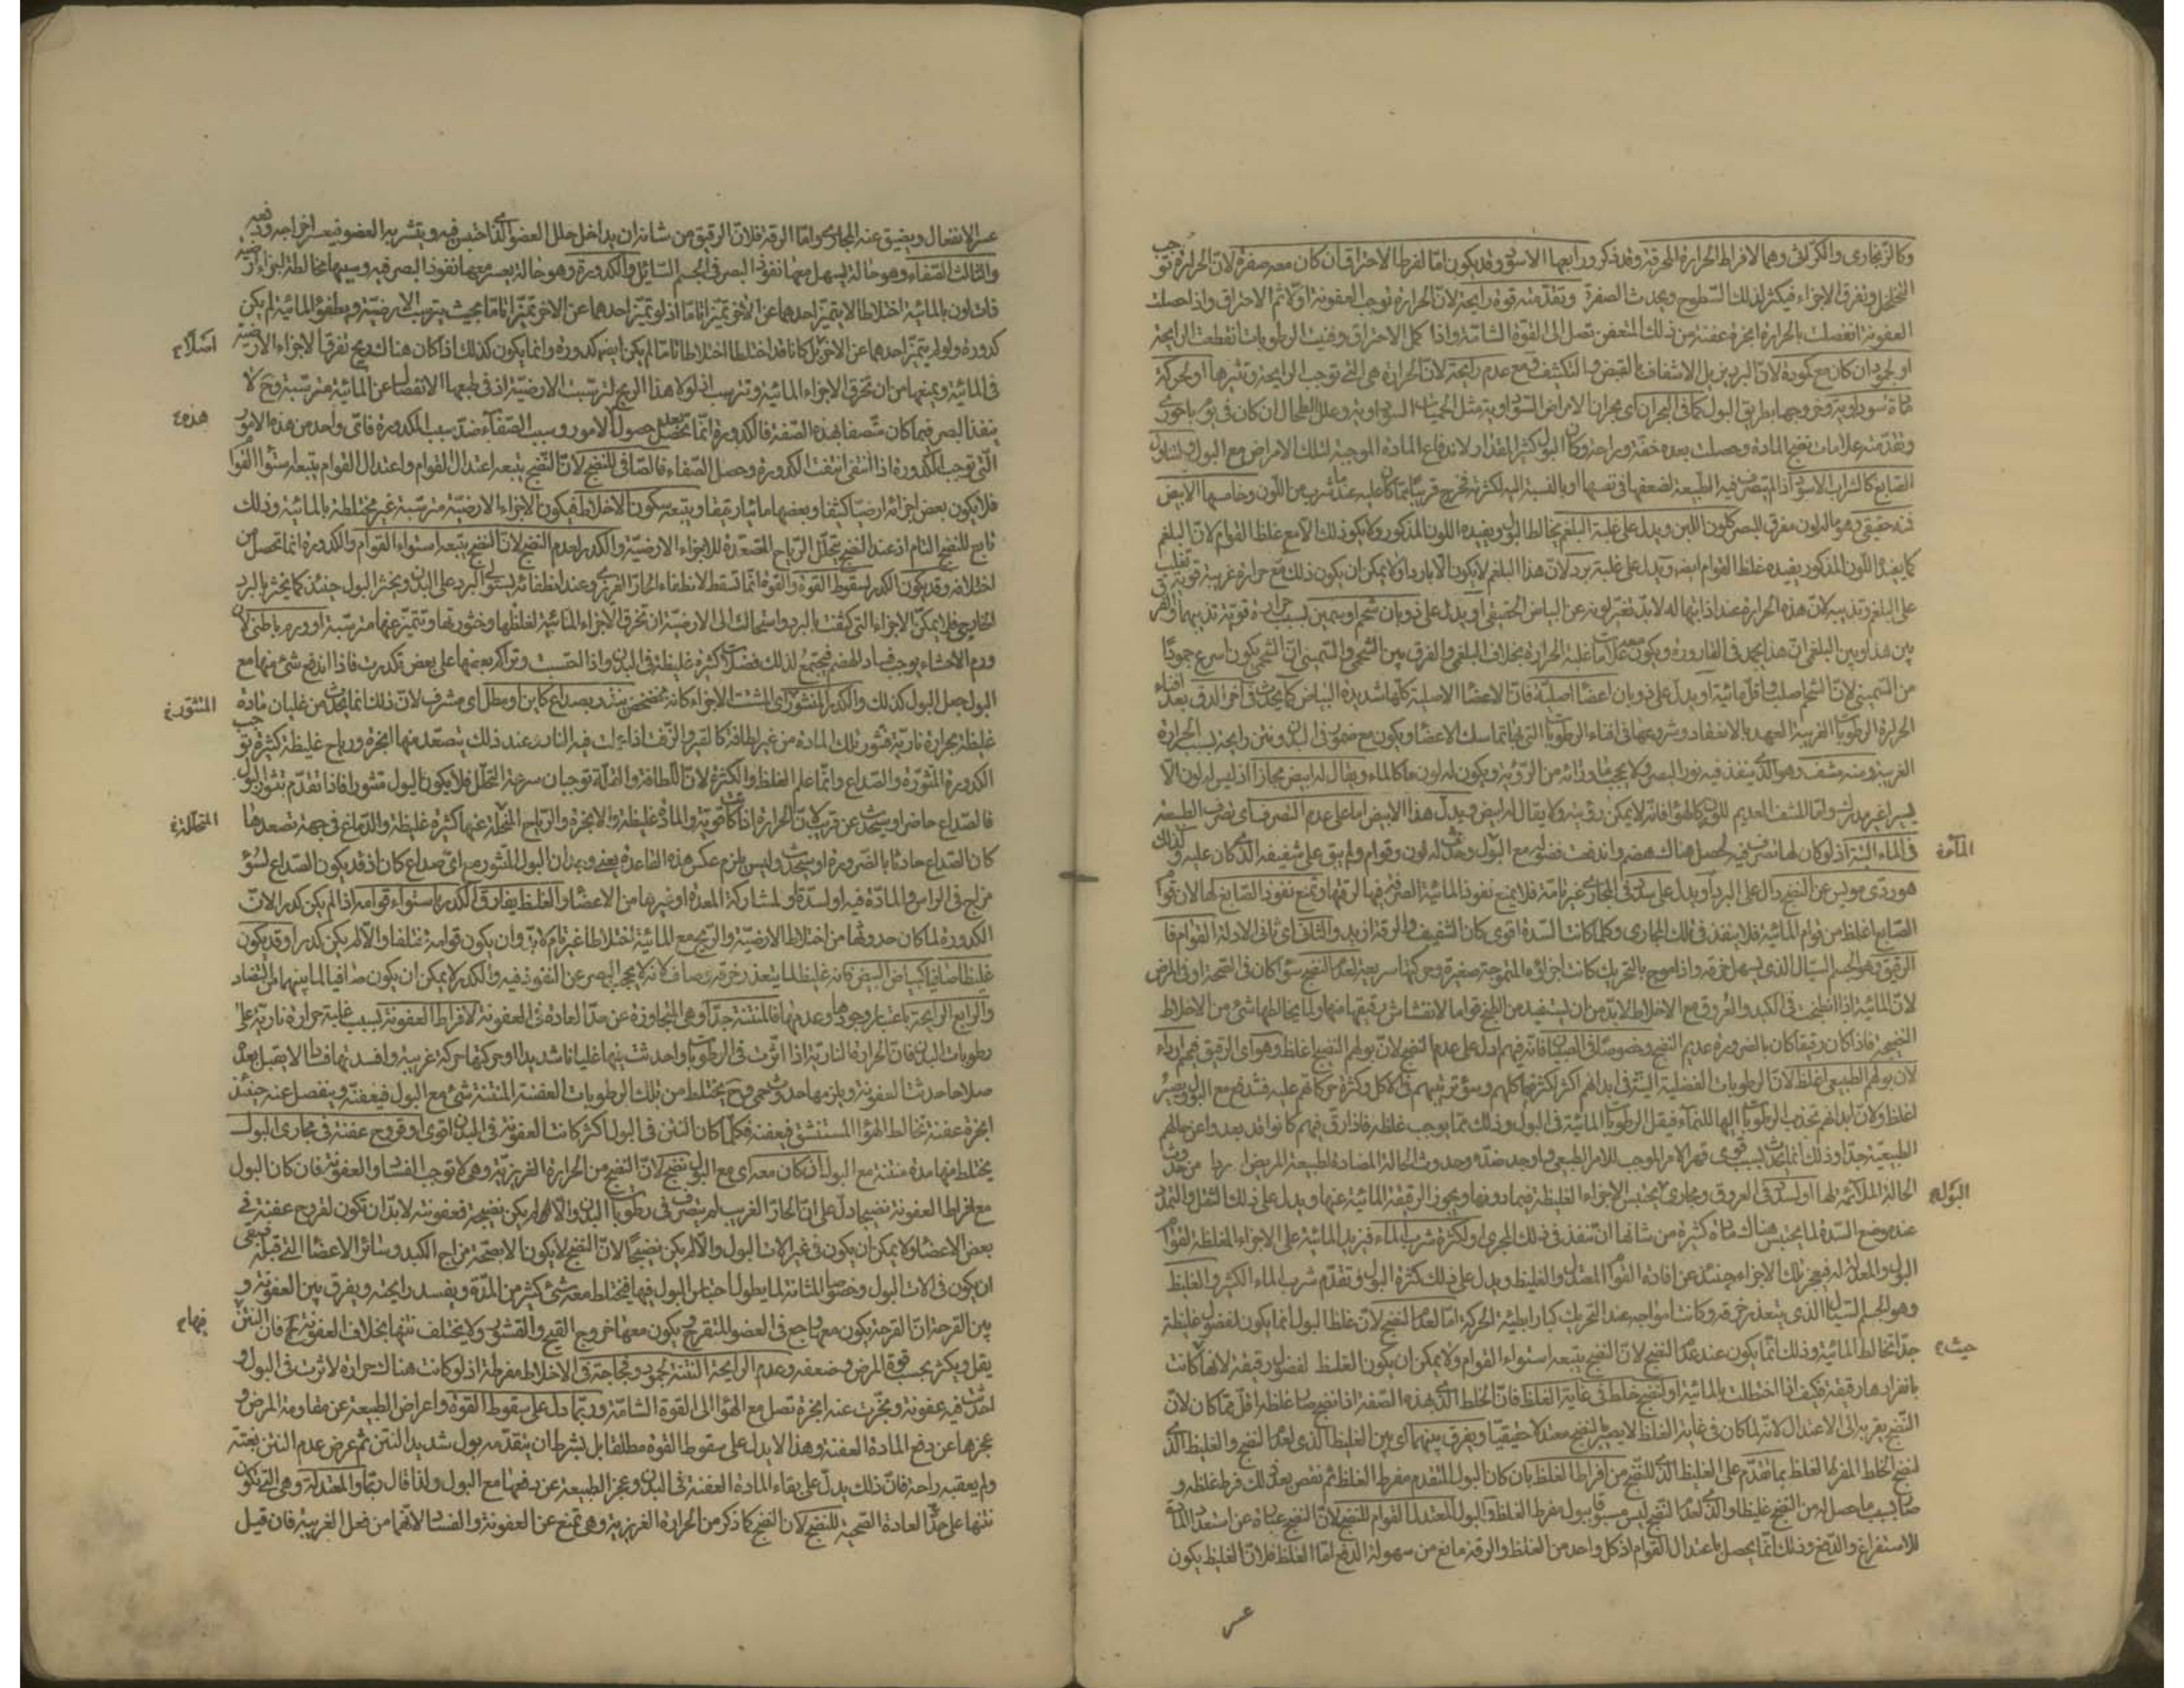 وكالزنجاري والكراثي وهما لافراط الحرارة المحرقة وقد ذكر ورابعها الاسود وقد يكون اما لفرط الاحتراق ان كان معه صفرة لان الحرارة توجب
التخلخل وتفرق الاجزاء فيكثر لذلك السطوح ويحدث الصفرة وتقدمته قوة رايحة لان الحرارة توجب العفونة اولا ثم الاحتراق واذا حصلت
العفونة انفصلت بالحرارة ابخرة عفنة من ذلك المتعفن تصل الى القوة الشامة واذا كمل الاحتراق وفنيت الرطوبات انقطعت الرايحة
او لجمود ان كان مع كمودة لان البرد يزيل الاشفاف بالقبض والتكثيف ومع عدم رايحة لان الحرارة هي التي توجب الرايحة وتثيرها او لحركة
مادة سوداوية وخروجها بطريق البول كما في البحران اي بحران الامراض السوداوية مثل الحميات السوداوية وعلل الطحال ان كان في يوم باحوري
وتقدمته علامات نضج المادة وحصلت بعده خفة وراحة وكان البول كثير المقدار لاندفاع المادة الموجبة لتلك الامراض مع البول او لتناول
الصابغ كالشراب الاسود اذا لم يتصرف فيه الطبيعة لضعفها في نفسها او بالنسبة اليه لكثرته فخرج قريبا مما كان عليه عند ما شرب من اللون وخامسها الابيض
فمنه حقيقي وهو ما له لون مفرق للبصر كلون اللبن ويدل على غلبة البلغم يخالط البول ويفيده اللون المذكور ولا يكون ذلك الا مع غلظ القوام لان البلغم
كما يفيد اللون المذكور يفيده غلظ القوام ايضا ويدل على غلبة برد لان هذا البلغم لا يكون الا باردا ولا يمكن ان يكون ذلك مع حرارة غريبة قوية تغلب
على البلغم وتذيبه لان هذه الحرارة عند اذابتها له لا بد تغير لونه عن البياض الحقيقي او يدل على ذوبان شحم او سمين بسبب حرارة قوية تذيبهما والفرق
بين هذا وبين البلغمي ان هذا يجمد في القارورة ويكون معه علامات غلبة الحرارة بخلاف البلغمي والفرق بين الشحمي والسميني ان الشحمي يكون اسرع جمودا
من السميني لان الشحم اصلب واقل مائية او يدل على ذوبان اعضاء اصلية فان الاعضاء الاصلية كلها شديدة البياض كما يحدث في آخر الدق بعد افناء
الحرارة الرطوبات القريبة العهد بالانعقاد وشروعها في افناء الرطوبات التي بها تماسك الاعضاء ويكون مع ضمور في البدن ونتن رايحة بسبب الحرارة
الغريبة ومنه مشف وهو الذي ينفذ فيه نور البصر ولا يحجب ما ورائه من الرؤية ويكون له لون ما كالماء ويقال له ابيض مجازا اذ ليس له لون الا
يسير غير مدرك واما المشف العديم اللون كالهواء فانه لا يمكن رؤيته ولا يقال له ابيض ويدل هذا الابيض اما على عدم التصرف اي تصرف الطبيعة
في الماء البتة اذ لو كان لها تصرف فيه لحصل هناك هضم واندفعت فضوله مع البول وحدث له لون وقوام ولم يبق على شفيفه الذي كان عليه ولذلك
المآءة
هو ردي مويس عن النضج دال على البرد او يدل على سدد في المجاري غير تامة فلا يمنع نفوذ المائية الصرفة فيها لرقتها وتمنع نفوذ الصابغ لها لان قوام
الصابغ اغلظ من قوام المائية فلا ينفذ في تلك المجاري وكلما كانت السدة اقوى كان الشفيف والرقة ازيد والثاني اي ثاني الادلة القوام فا
الرقيق وهو الجسم السيال الذي يسهل خرقه واذا موج بالتحريك كانت اجزاؤه المتموجة صغيرة وحركتها سريعة لعدم النضج سواء كان في الصحة او في المرض
لان المائية اذا انطبخت في الكبد والعروق مع الاخلاط لا بد من ان تستفيد من الطبخ قواما لانفشاش رقيقها منها ولما يخالطها شيء من الاخلاط
النضيجة فاذا كان رقيقا كان بالضرورة عديم النضج وخصوصا في الصبيان فانه فيهم ادل على عدم النضج لان بولهم النضيج اغلظ وهو اي الرقيق فيهم ارداء
لان بولهم الطبيعي اغلظ لان الرطوبات الفضلية التي في ابدانهم اكثر لكثرة اكلهم وسوء ترتيبهم في الاكل وكثرة حركاتهم عليه فتندفع مع البول ويصير
اغلظ ولان ابدانهم تجذب الرطوبات اليها للنماء فيقل الرطوبات المائية في البول وذلك مما يوجب غلظه فاذا رق فيهم كانوا قد بعدوا عن حالهم
الطبيعية جدا وذلك انما يحدث بسبب قوي قهر الامر الموجب للامر الطبيعي واوجد ضده وحدوث الحالة المضادة لطبيعة المريض اردا من حدوث
الحالة الملائمة لها او لسدد في العروق ومجاري يحتبس الاجزاء الغليظة فيما دونها ويجوز الرقيقة المائية عنها ويدل على ذلك الثقل والتمدد
البول
عند موضع السدة لما يحتبس هناك مادة كثيرة من شانها ان تنفذ في ذلك المجرى او لكثرة شرب الماء فيزيد المائية على الاجزاء المغلظة لقوام
البول والمعدلة له فيعجز تلك الاجزاء حينئذ عن افادة القوام المعتدل والغليظ ويدل على ذلك كثرة البول وتقدم شرب الماء الكثير والغليظ
وهو الجسم السيال الذي يتعذر خرقه وكانت امواجه عند التحريك كبارا بطيئة الحركة اما لعدم النضج لان غلظ البول انما يكون لفضول غليظة
جدا تخالط المائية وذلك انما يكون عند عدم النضج لان النضج يتبعه استواء القوام ولا يمكن ان يكون الغلظ لفضول رقيقة لانها كانت
حيث
بانفرادها رقيقة فكيف اذا اختلطت بالمائية او لنضج خلط في غاية الغلظ فان الخلط الذي هذه الصفة اذا نضج صار غلظه اقل مما كان لان
النضج يقربه الى الاعتدال لانه لما كان في غاية الغلظ لا يصير بالنضج معتدلا حقيقيا ويفرق بينهما اي بين الغليظ الذي لعدم النضج والغليظ الذي
لنضج الخلط المفرط الغلظ بما تقدم على الغليظ الذي للنضج من افراط الغلظ بان كان البول المتقدم مفرط الغلظ ثم نقص بعد ذلك فرط غلظه و
صار بسبب ما حصل له من النضج غليظا والذي لعدم النضج ليس مسبوقا ببول مفرط الغلظ والبول المعتدل القوام للنضج لان النضج عبارة عن استعداد المادة
للاستفراغ والدفع وذلك انما يحصل باعتدال القوام اذ كل واحد من الغلظ والرقة مانع من سهولة الدفع اما الغلظ فلان الغليظ يكون
عسر
عسر الانفعال ويضيق عنه المجاري واما الرقة فلان الرقيق من شانه ان يداخل خلل العضو الذي احتبس فيه ويتشربه العضو فيعسر اخراجه ودفعه
والثالث الصفاء وهو حالة يسهل معها نفوذ البصر في الجسم السائل والكدورة وهو حالة يعسر معها نفوذ البصر فيه وسببها مخالطة اجزاء ارضية
قتلون بالمائية اختلاطا لا يتميز احدهما عن الاخر تميزا تاما اذ لو تميز احدهما عن الاخر تميزا تاما بحيث يترسب الارضية ويطفو المائية لم يكن
كدورة ولو لم يتميز احدهما عن الاخر بل كانا قد اختلطا اختلاطا تاما لم يكن ايضا كدورة وانما يكون كذلك اذا كان هناك ريح تفرق الاجزاء الارضية
اصلا
في المائية ويمنعها من ان تخرق الاجزاء المائية وترسب اذ لولا هذا الريح لترسبت الارضية اذ في طبعها الانفصال عن المائية مترسبة وح لا
ينفذ البصر فيما كان متصفا بهذه الصفة فالكدورة انما تحصل حصول الامور وسبب الصفاء ضد سبب الكدورة فاي واحد من هذه الامور
هذه
التي توجب الكدورة اذا انتفى انتفت الكدورة وحصل الصفاء فالصافي للنضج لان النضج يتبعه اعتدال القوام واعتدال القوام يتبعه استواء القوام
فلا يكون بعض اجزائه ارضيا كثيفا وبعضها مائيا رقيقا ويتبعه سكون الاخلاط فيكون الاجزاء الارضية مترسبة غير مختلطة بالمائية وذلك
تابع للنضج التام اذ عند النضج يتحلل الرياح المصعدة للاجزاء الارضية والكدر لعدم النضج لان النضج يتبعه استواء القوام والكدورة انما تحصل من
اختلافه وقد يكون الكدر لسقوط القوة والقوة انما تسقط لانطفاء الحار الغريزي وعند انطفائه يستولي البرد على البدن ويخثر البول حينئذ كما يخثر بالبرد
الخارجي فلا يمكن الاجزاء التي كثفت بالبرد واستحالت الى الارضية ان تخرق الاجزاء المائية لغلظها وخثورتها وتتميز عنها مترسبة او ورم باطني لان
ورم الاحشاء يوجب فساد الهضم فيجتمع لذلك فضلات كثيرة غليظة في البدن واذا احتبست وتراكم بعضها على بعض تكدرت فاذا اندفع شيء منها مع
البول جعل البول كذلك والكدر المنثور اي المشتت الاجزاء كانه مخضخض ينذر بصداع كاين او مطل اي مشرف لان ذلك انما يحدث من غليان مادة
المنثورة
غليظة بحرارة نارية تثور تلك المادة من غير لطافة كالقير والزفت اذا عملت فيه النار وعند ذلك يتصعد منها ابخرة ورياح غليظة كثيرة توجب
الكدورة المثورة والصداع وانما علم الغلظ والكثرة لان اللطافة والقلة توجبان سرعة التحلل فلا يكون البول مثورا فاذا تقدم تثور البول
فالصداع حاضر او سيحدث عن قريب لان الحرارة اذا كانت قوية والمادة غليظة والابخرة والرياح المتحللة عنها كثيرة غليظة والدماغ في جهة تصعدها
المتحللة
كان الصداع حادثا بالضرورة او سيحدث وليس يلزم عكس هذه القاعدة يعني وجدان البول المثور مع اي صداع كان اذ قد يكون الصداع لسوء
مزاج في الراس والمادة فيه او لسدة او لمشاركة المعدة او غيرها من الاعضاء والغلظ يفارق الكدر باستواء قوامه اذا لم يكن كدرا لان
الكدورة لما كان حدوثها من اختلاط الارضية والريح مع المائية اختلاطا غير تام لا بد وان يكون قوامه مختلفا والا لم يكن كدرا وقد يكون
غليظا صافيا كبياض البيض فانه غليظ لما يتعذر خرقه صاف لانه لا يحجب البصر عن النفوذ فيه والكدر لا يمكن ان يكون صافيا لما بينهما من التضاد
والرابع الرايحة باعتبار وجودها وعدمها فالمنتنة جدا وهي المتجاوزة عن حد العادة في العفونة لافراط العفونة بسبب غلبة حرارة نارية على
رطوبات البدن فان الحرارة النارية اذا اثرت في الرطوبات واحدثت فيها غليانا شديدا وحركتها حركة غريبة وافسدتها فسادا لا يقبل بعده
صلاحا حدثت العفونة ويلزمها حدوث حمى وح يختلط من تلك الرطوبات العفنة المنتنة شيء مع البول فيعفنه وينفصل عنه حينئذ
ابخرة عفنة تخالط الهواء المستنشق فيعفنه فكلما كان النتن في البول اكثر كانت العفونة في البدن اقوى او قروح عفنة في مجاري البول
يختلط منها مدة منتنة مع البول ان كان معه اي مع البول نضج لان النضج من الحرارة الغريزية وهي لا توجب الفساد والعفونة فان كان البول
مع افراط العفونة نضيجا دل على ان الحار الغريب لم يتصرف في رطوبات البدن والا لم يكن نضيجا فعفونته لا بد ان تكون لقروح عفنة في
بعض الاعضاء ولا يمكن ان يكون في غير الات البول والا لم يكن نضيجا لان النضج لا يكون الا بصحة مزاج الكبد وسائر الاعضاء التي قبله فبقي
ان يكون في الات البول وخصوصا المثانة لما يطول احتباس البول فيها فيختلط معه شيء كثير من المدة ويفسد رايحته ويفرق بين العفونة و
بين القرحة ان القرحة يكون مع وجع في العضو المتقرح ويكون معها خروج القيح والقشور ولا يختلف نتنها بخلاف العفونة فان النتن
فيها
يقل ويكثر بحسب قوة المرض وضعفه وعدم الرايحة النتنة لجمود وفجاجة في الاخلاط مفرطة اذ لو كانت هناك حرارة لاثرت في البول و
احدثت فيه عفونة وبخرت عنه ابخرة تصل مع الهواء الى القوة الشامة وربما دل على سقوط القوة واعراض الطبيعة عن مقاومة المرض و
عجزها عن دفع المادة العفنة وهذا لا يدل على سقوط القوة مطلقا بل بشرط ان يتقدمه بول شديد النتن ثم عرض عدم النتن بغتة
ولم يعقبه راحة فان ذلك يدل على بقاء المادة العفنة في البدن وعجز الطبيعة عن دفعها مع البول ولذا قال ربما والمعتدلة وهي التي تكون
نتنها على حد العادة الصحية للنضج لان النضج كما ذكر من الحرارة الغريزية وهي تمنع عن العفونة والفساد لانهما من فعل الغريبة فان قيل